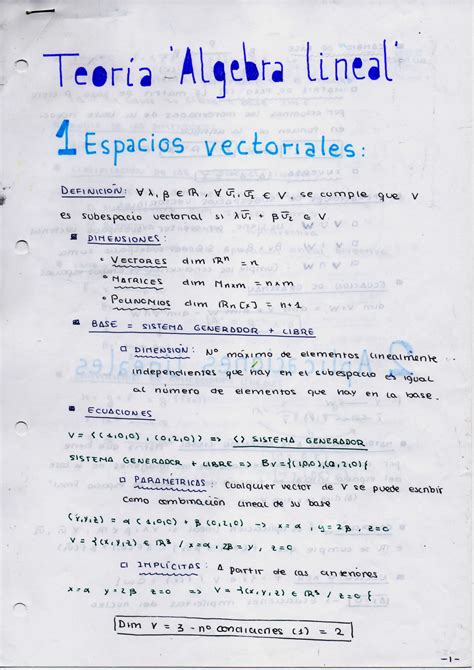 Teoría 'Algebra lineal'
1 Espacios vectoriales:
DEFINICIÓN: ∀ λ, β ∈ ℝ, ∀ v̄₁, v̄₂ ∈ V, se cumple que V
es subespacio vectorial si λv̄₁ + βv̄₂ ∈ V
DIMENSIONES:
° VECTORES dim ℝⁿ = n
° MATRICES dim Mnxm = n×m
° POLINOMIOS dim ℝn[x] = n+1
BASE = SISTEMA GENERADOR + LIBRE
DIMENSIÓN: Nº máximo de elementos linealmente
independientes que hay en el subespacio es igual
al número de elementos que hay en la base.
ECUACIONES
V = <(1,0,0), (0,2,0)> => <> SISTEMA GENERADOR
SISTEMA GENERADOR + LIBRE => Bv = {(1,0,0), (0,2,0)}
PARAMÉTRICAS: Cualquier vector de V se puede escribir
como combinación lineal de su base
(x,y,z) = α (1,0,0) + β (0,2,0) => x=α, y=2β, z=0
V = {(x,y,z) ∈ ℝ³ / x=α, 2β=y, z=0
IMPLÍCITAS: A partir de las anteriores
x=α y=2β z=0 => V = {(x,y,z) ∈ ℝ³ / z=0}
Dim V = 3 - nº condiciones (1) = 2
-1-